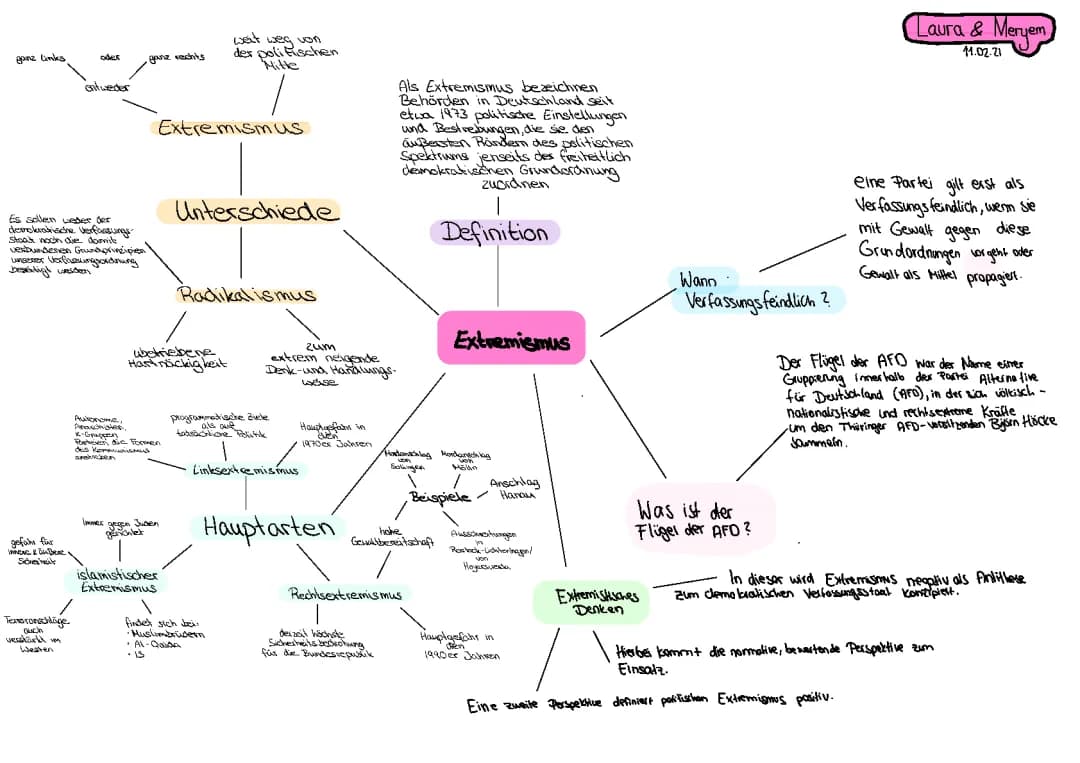 Laura & Meryem
11.02.21
weit weg von
der politischen
Mitte
ganz links
oder
ganz rechts
entweder
Extremismus
Unterschiede
Es sollen weder der
demokratische Verfassungs-
staat noch die damit
verbundenen Grundprinzipien
unserer Verfassungsordnung
beseitigt werden
Radikalismus
übetriebene
Hartnäckigkeit
zum
extrem neigende
Denk-und Handlungs-
weise
Als Extremismus bezeichnen
Behörden in Deutschland seit
etwa 1973 politische Einstellungen
und Bestrebungen, die sie den
äußersten Rändern des politischen
Spektrums jenseits der freiheitlich
demokratischen Grundordnung
zuordnen
Definition
Extremismus
eine Partei gilt erst als
Verfassungsfeindlich, wenn sie
mit Gewalt gegen diese
Grundordnungen vorgeht oder
Gewalt als Mittel propagiert.
Wann
Verfassungsfeindlich?
Der Flügel der AFD war der Name einer
Gruppierung innerhalb der Partei Alternative
für Deutschland (AFD), in der sich völkisch-
nationalistische und rechtsextreme Kräfte
um den Thüringer AFD-vorsitzenden Björn Höcke
sammeln.
Was ist der
Flügel der AFD?
Autonome,
Anarchisten,
K-Gruppen
Parteien, die Formen
des Kommunismus
anstreben
programmatische Ziele
als auf
tatsächliche Politik
Hauptgefahr in
den
1970er Jahren
Linksextremismus
Hauptarten
Immer gegen Juden
gerichtet
gefahr für
innere & äußere
Sicherheit
islamistischer
Extremismus
Terroranschläge
auch
verstärkt im
Westen
findet sich bei:
• Muslimbrüdern
• Al-Qaida
• IS
Mordanschlag
von
Solingen
Mordanschlag
von
Mölln
Anschlag
Hanau
Beispiele
hohe
Gewaltbereitschaft
Ausschreitungen
in
Rostock-Lichtenhagen/
von
Hoyerswerda
Rechtsextremismus
derzeit höchste
Sicherheitsbedrohung
für die Bundesrepublik
Hauptgefahr in
den
1990er Jahren
Extremistisches
Denken
In dieser wird Extremismus negativ als Antithese
zum demokratischen Verfassungsstaat konzipiert.
Hierbei kommt die normative, bewertende Perspektive zum
Einsatz.
Eine zweite Perspektive definiert politischen Extremismus positiv.